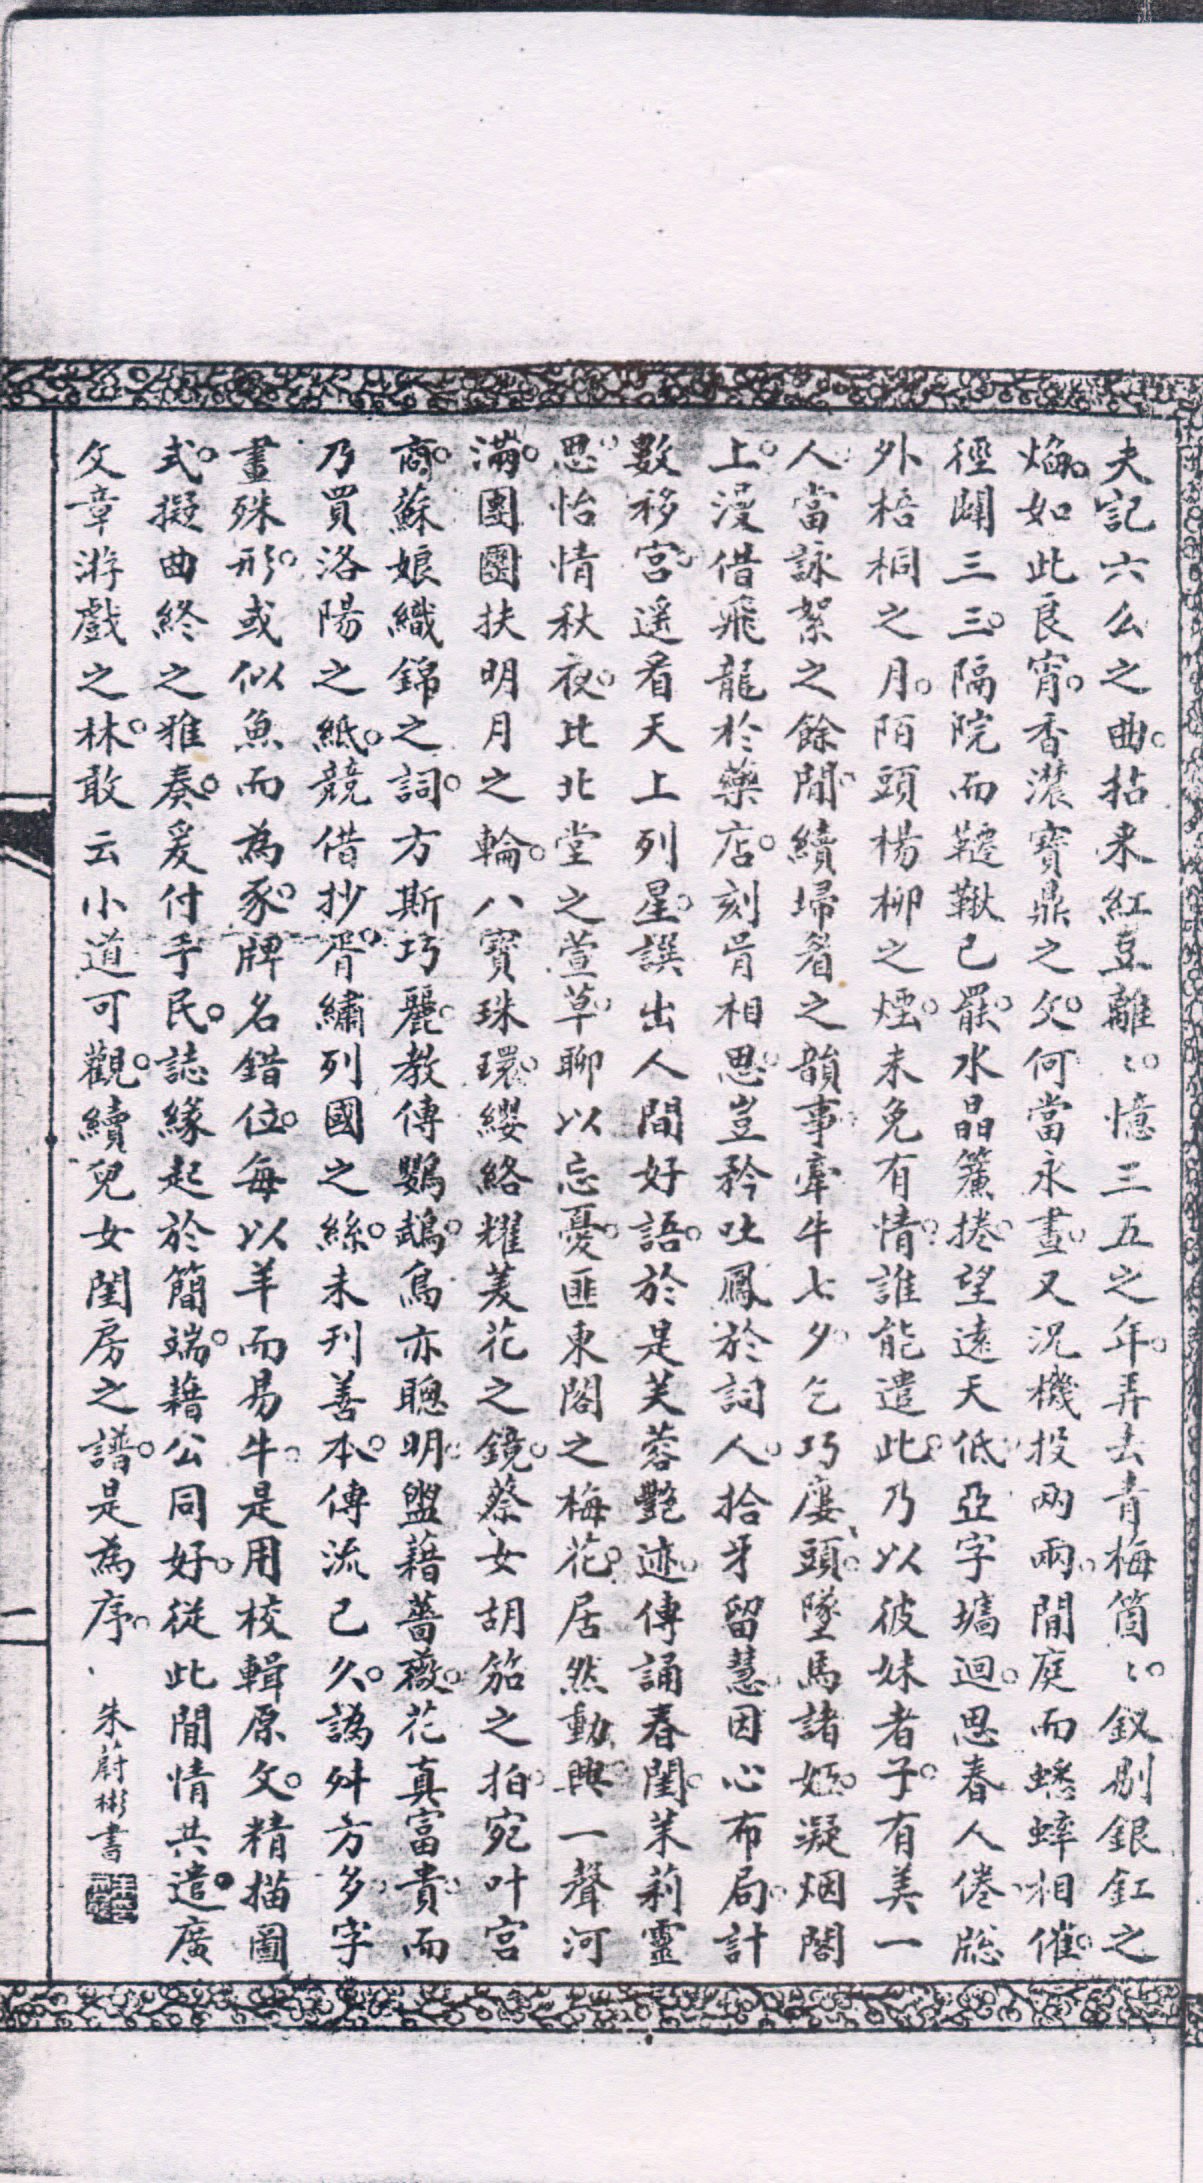 夫記六么之曲。拈来紅豆離〻。憶三五之年。弄去青梅箇〻。釵剔銀釭之
焔。如此良宵。香濃寶鼎之父。何當永晝。又況機投兩兩。閒庭而蟋蟀相催。
徑闢三三。隔院而韆鞦已罷。水晶簾捲。望遠天低。亞字墻迴。思春人倦。牕
外梧桐之月。陌頭楊柳之煙。未免有情。誰能遣此。乃以彼妹者子。有美一
人。當詠絮之餘閒。續埽眉之韻事。牽牛七夕。乞巧廔頭。墜馬諸姬。凝烟閣
上。漫借飛龍於藥店。刻骨相思。豈矜吐鳳於詞人。拾牙留慧。因心布局。計
數移宮。遥看天上列星。譔出人間好語。於是芙蓉艷迹。傳誦春閨。茉莉靈
思。怡情秋夜。比北堂之萱草。聊以忘憂。匪東閣之梅花。居然動興。一聲河
滿。團圞扶明月之輪。八寶珠環。纓絡耀菱花之鏡。蔡女胡笳之拍。宛叶宮
商。蘇娘織錦之詞。方斯巧麗。教傳鸚鵡。鳥亦聰明。盥藉薔薇。花真富貴。而
乃買洛陽之紙。競借抄胥。繡列國之絲。未刊善本。傳流已久。譌舛方多。字
畫殊形。或似魚而為豕。牌名錯位。每以羊而易牛。是用校輯原文。精描圖
式。擬曲終之雅奏。爰付手民。誌緣起於簡端。藉公同好。從此閒情共遣。廣
文章游戲之林。敢云小道可觀。續兒女閨房之譜。是為序。
朱蔚彬書
一